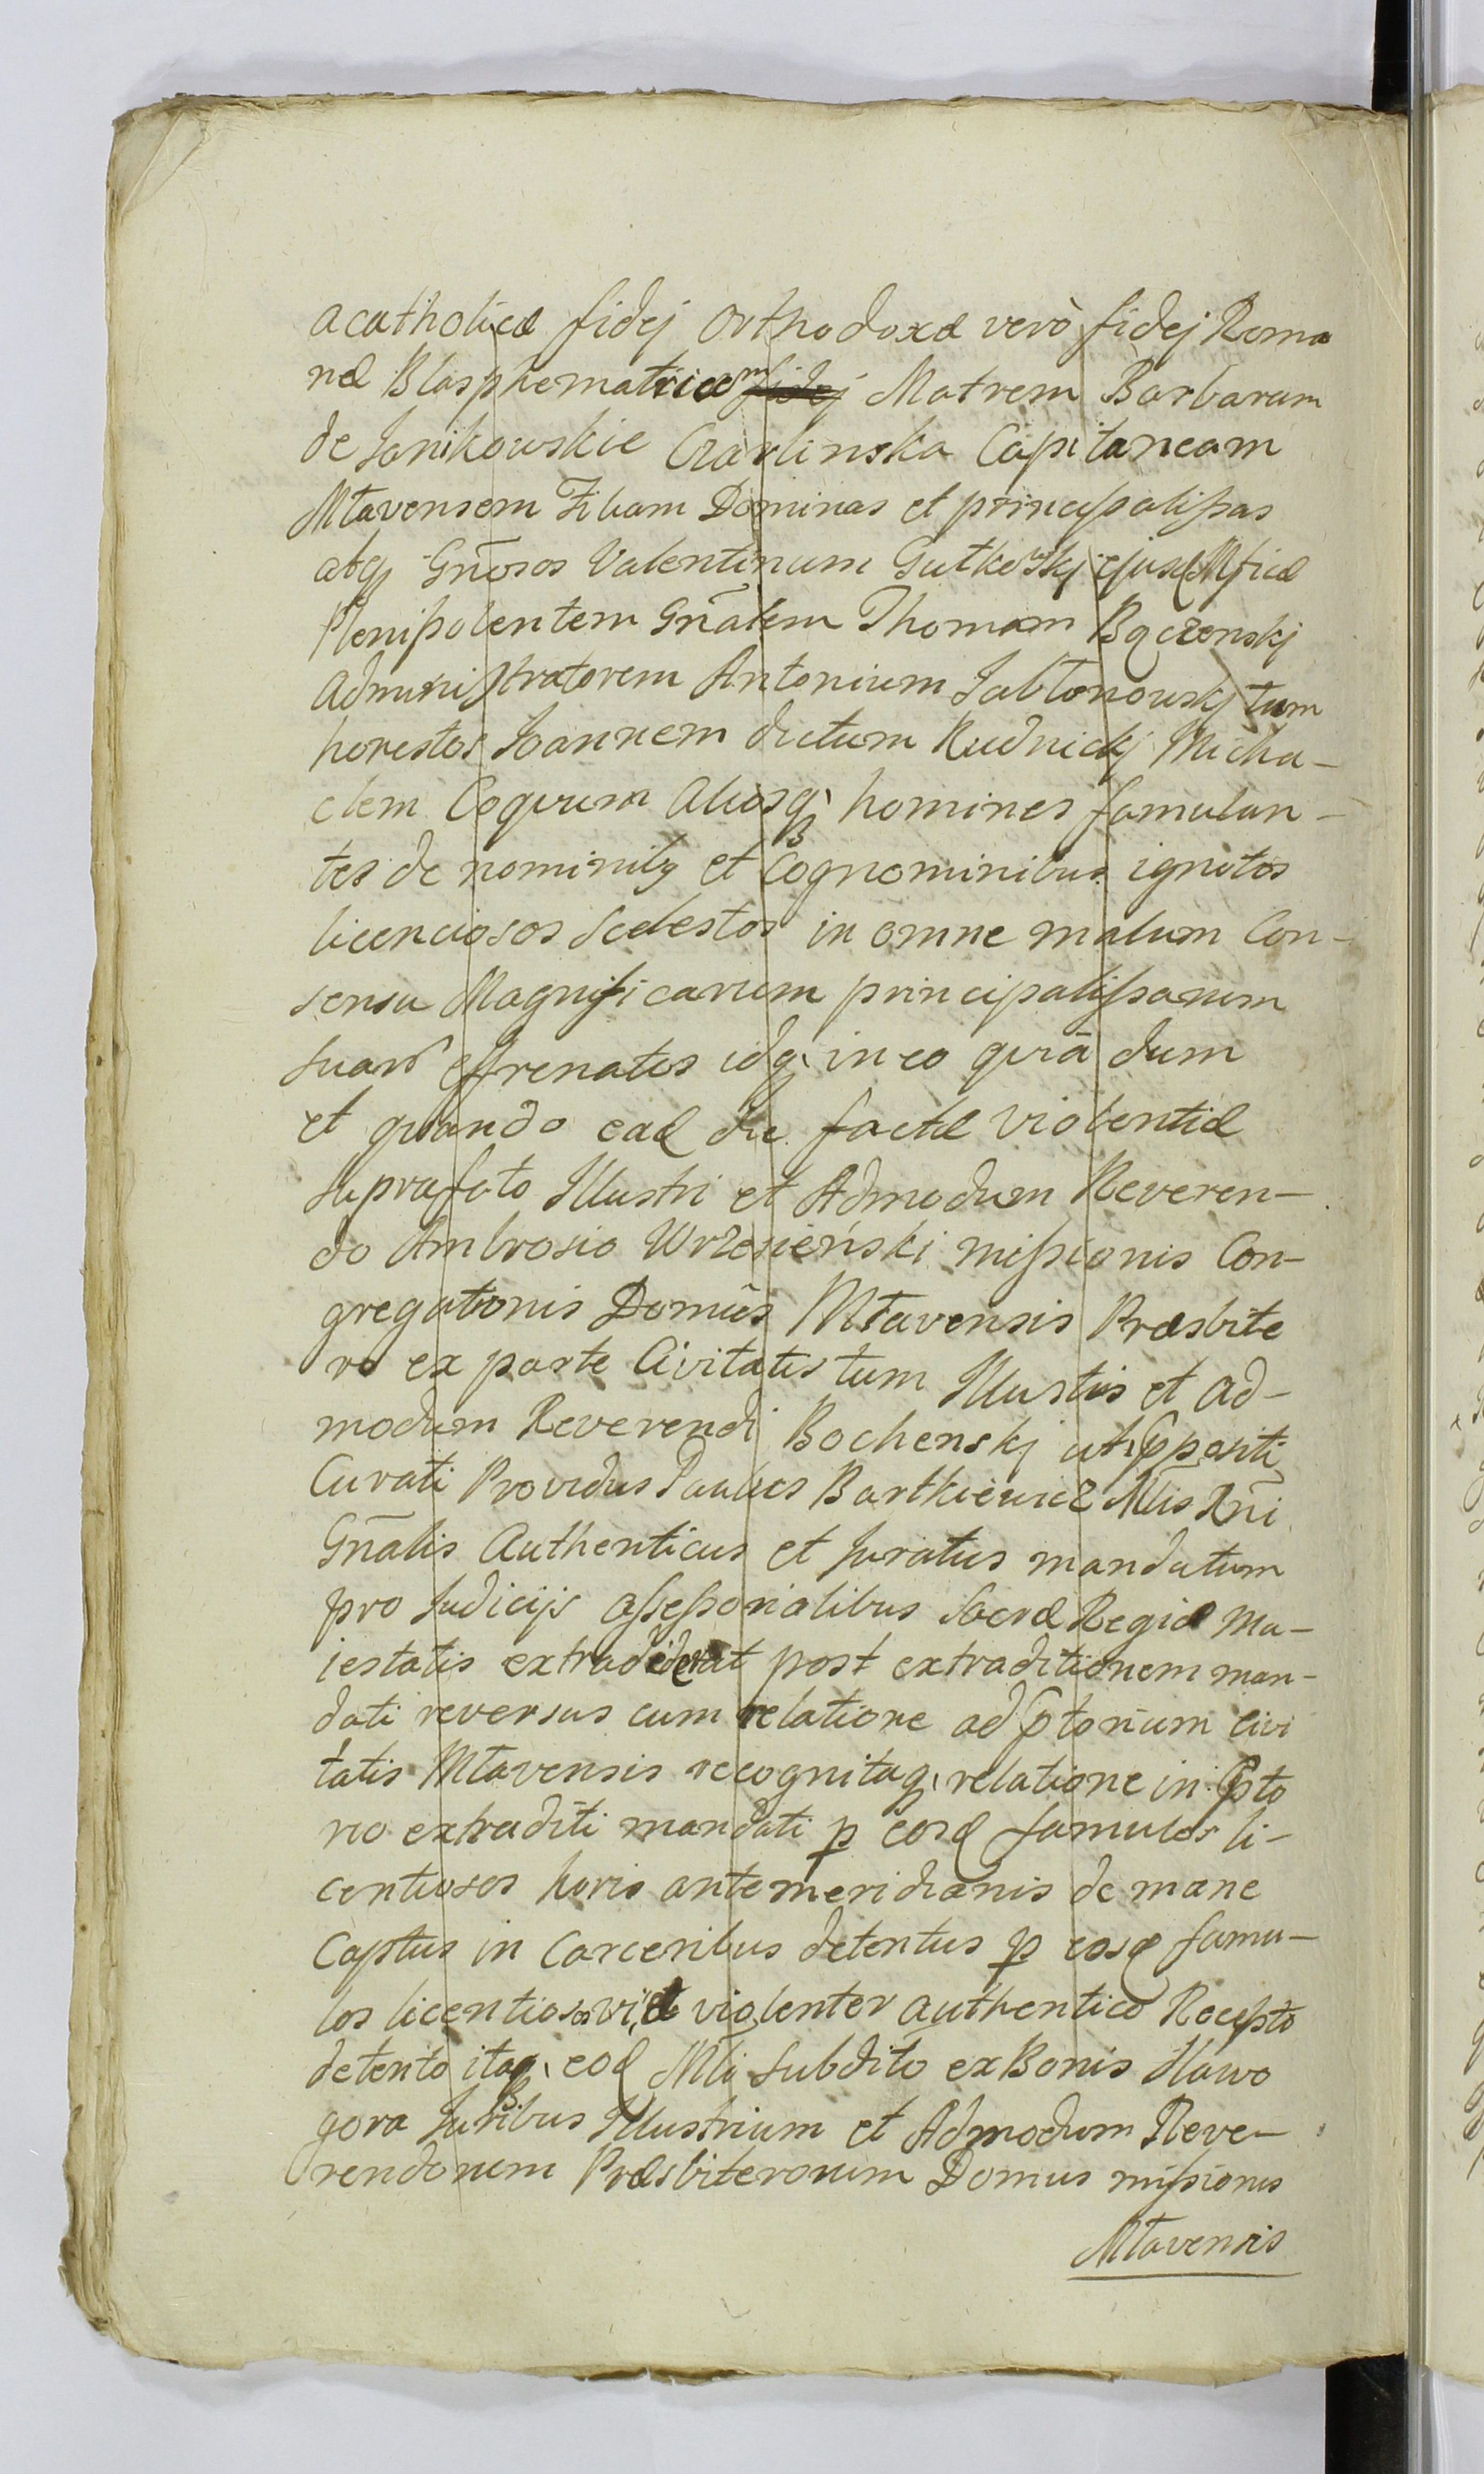 acatholicæ fidej Orthodoxæ verò fidej Roma
næ Blasphematricem fidej Matrem Barbaram
de Janikowskie Czarlinska Capitaneam
Mławensem Filiam Dominas et principalissas
atq Gnosos Valentinum Gutkowskj ejusd Mficæ
Plenipotentem Gnalem Thomam Bączenskj
Administratorem Antonium Jabłonowskj tum
honestos Joannem dictum Rudnickj Micha-
elem Coquum Aliosq homines famulan-
tes de nominibq et Cognominibus ignotos
licenciosos scelestos in omne malum Con-
sensu Magnificarum principalissarum
suar effrenatos idq in eo quia dum
et quando ead die factæ violentiæ
suprafato Illustri et Admodum Reveren-
do Ambrosio Wrzesieński missionis Con-
gregationis Domûs Młavensis Præsbite
ro ex parte Civitatis tum Illustris et ad-
modum Reverendi Bochenskj uti
Curati Providus Paulus Bartkiewicz Mlis Rni
Gnalis Authenticus et Juratus mandatum
pro Judicijs assessorialibus Sacræ Regiæ Ma-
iestatis extradiderat post extraditionem man-
dati reversus cum relatione ad ptorium Civi
tatis Młavensis recognitaq relatione in Pto
rio extraditi mandati p eosd famulos li-
centiosos horis antemeridianis de mane
Captus in Carceribus detentus p eosd famu-
los licentiosos vi et violenter authentico Recepto
detento itaq eod Mli subdito ex Bonis Nawo
gora Juribus Illustrium et Admodum Reve-
rendorum Præsbiterorum Domus missionis
Młavensis